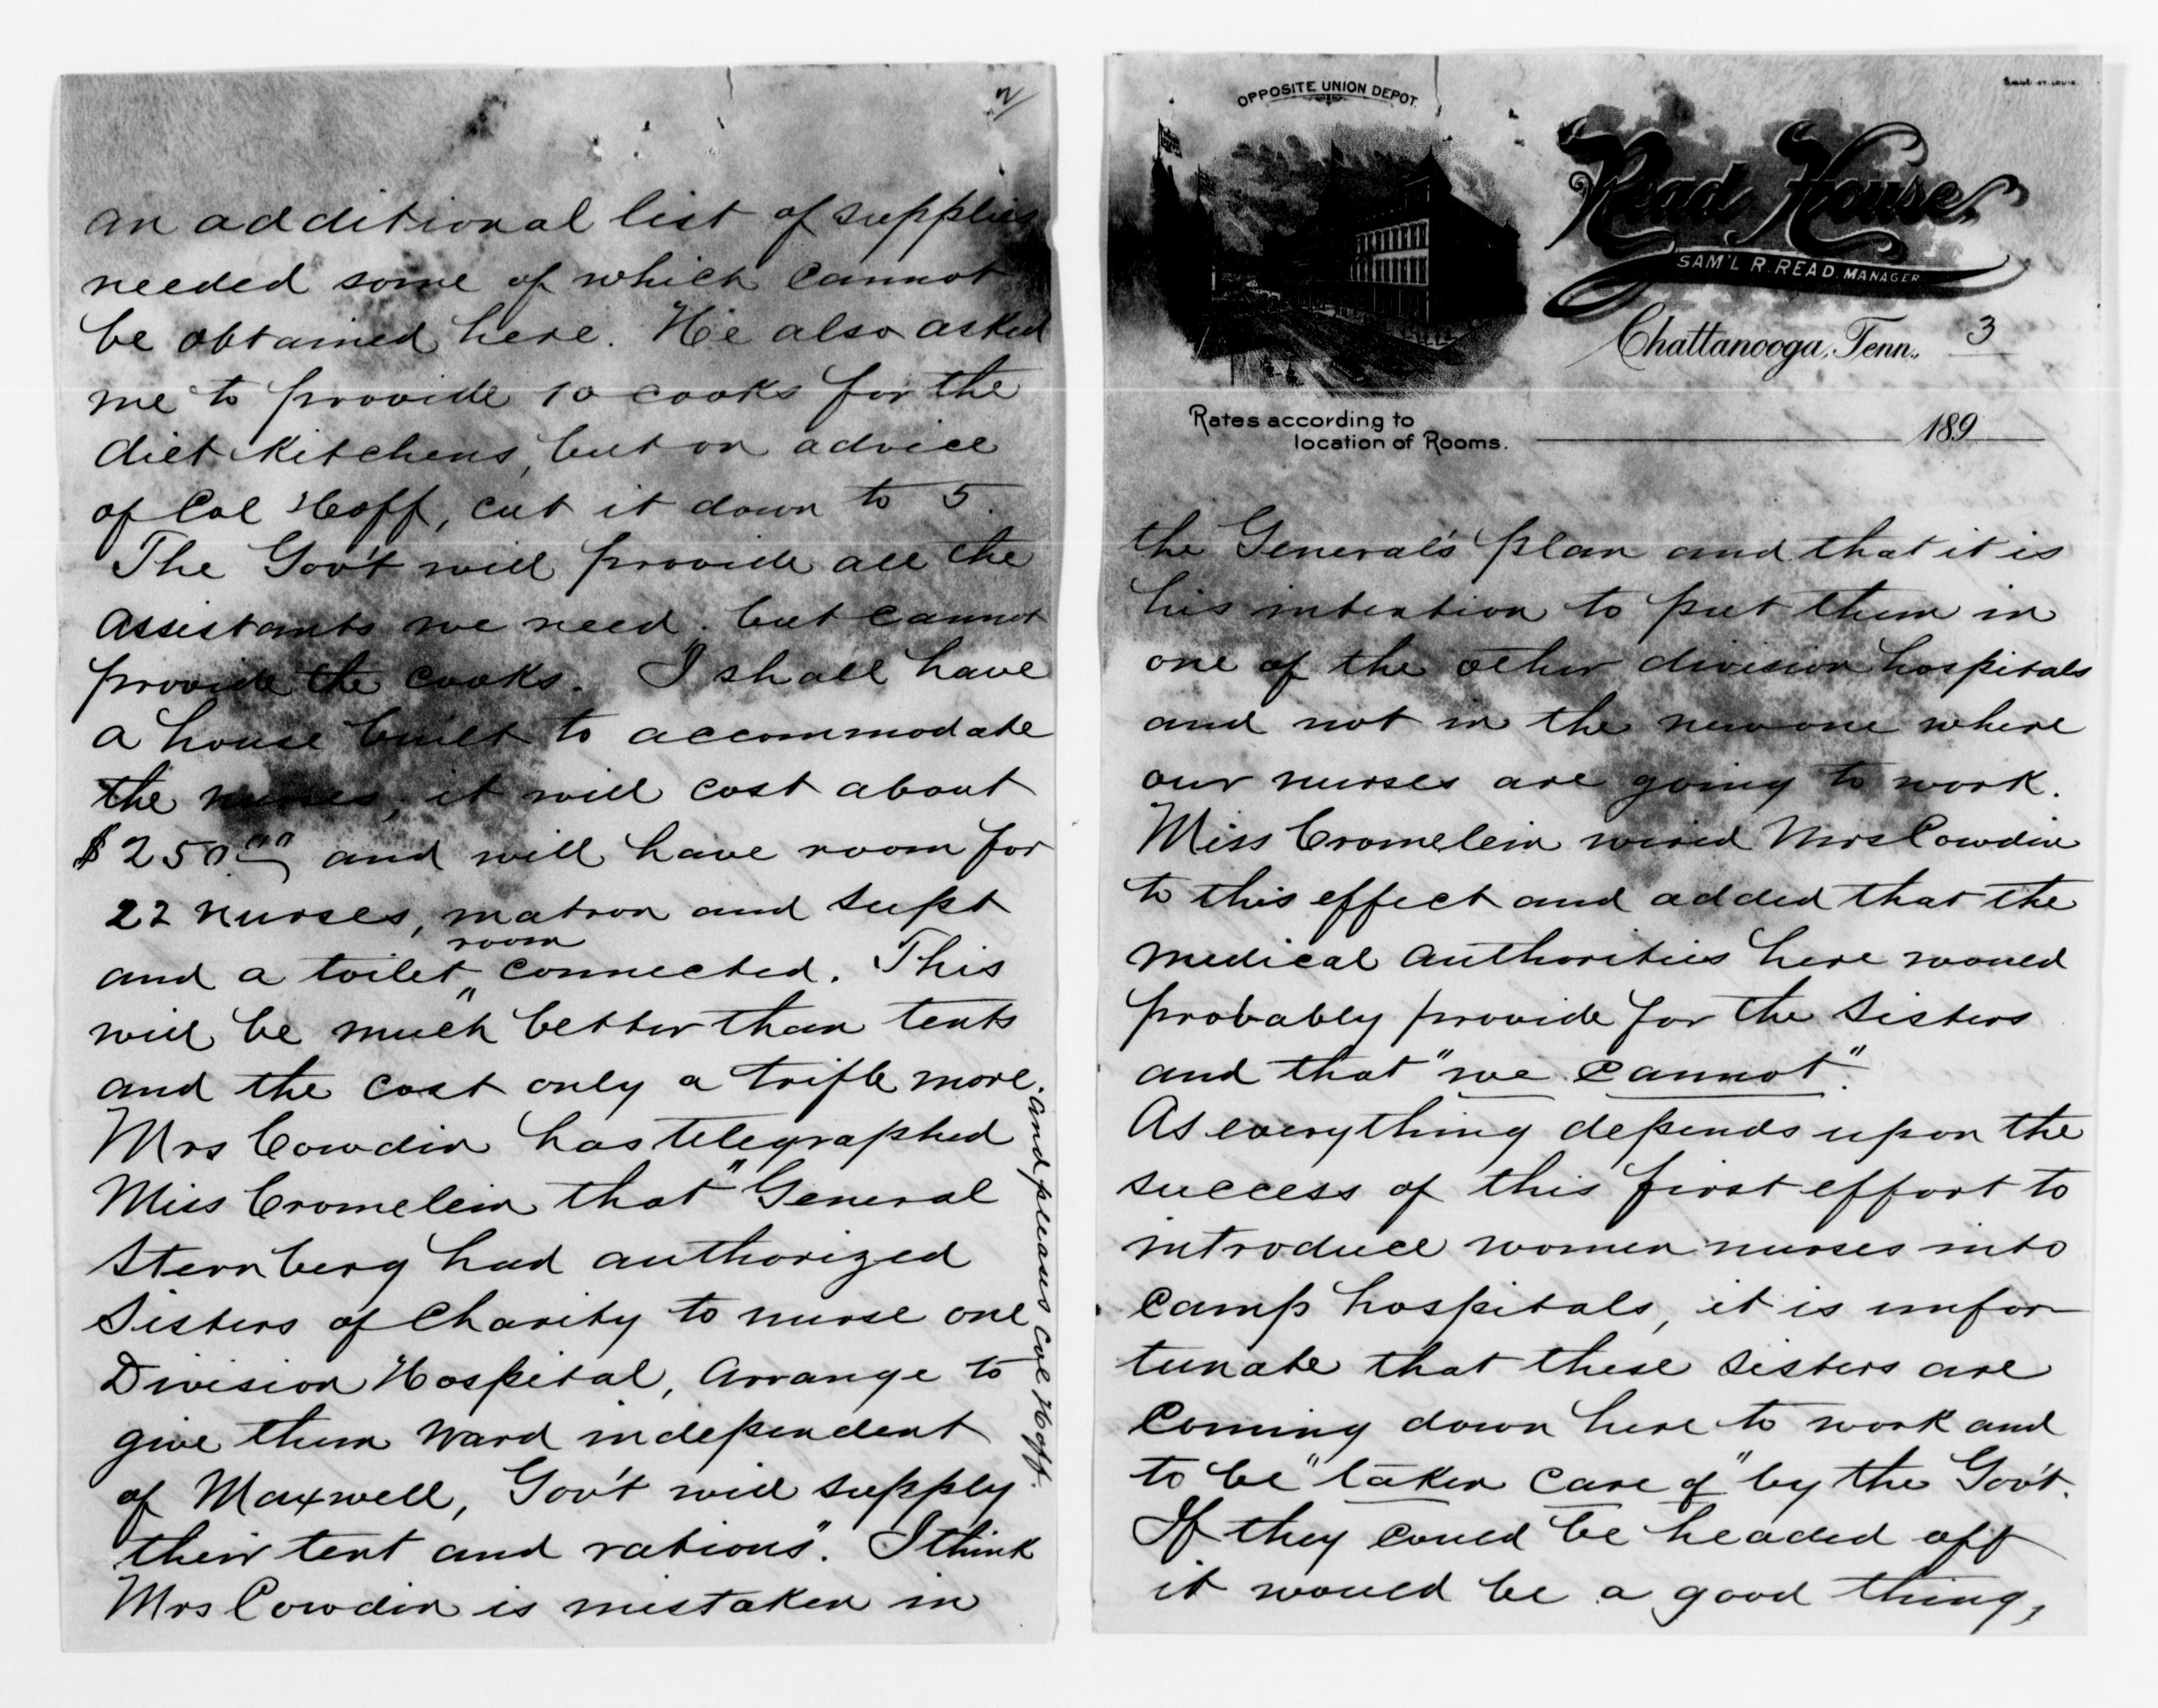 2/
an additional list of supplies
needed some of which cannot
be obtained here. He also asked
me to provide 10 cooks for the
diet kitchens, but on advice
of Col Hoff, cut it down to 5.
The Gov't will provide all the
assistants we need, but cannot
provide the cooks. I shall have
a house built to accommodate
the nurses, it will cost about
$250.00 and will have room for
22 nurses, matron and supt
room
and a toilet " connected. This
will be much better than tents
and the cost only a trifle more.
and pleases Col Hoff.
Mrs Cowdin has telegraphed
Miss Cromelein that "General
Sternberg had authorized
Sisters of Charity to nurse one
Division Hospital, Arrange to
give them Ward independent
of Maxwell, Gov't will supply
their tent and rations". I think
Mrs Cowdin is mistaken in
OPPOSITE UNION DEPOT.
Read House,
SAM'L R. READ. MANAGER
Chattanooga, Tenn., 3
Rates according to
location of Rooms.
189
the General's plan and that it is
his intention to put them in
one of the other division hospitals
and not in the new one where
our nurses are going to work.
Miss Cromelein wired Mrs Cowdin
to this effect and added that the
medical authorities here would
probably provide for the Sisters
and that "we cannot".
As everything depends upon the
success of this first effort to
introduce women nurses into
camp hospitals, it is unfor-
tunate that these Sisters are
coming down here to work and
to be "taken care of" by the Gov't.
If they could be headed off
it would be a good thing,